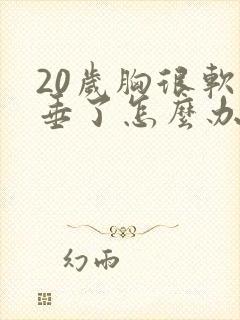 20歲胸很軟
垂了怎麼办
幻雨